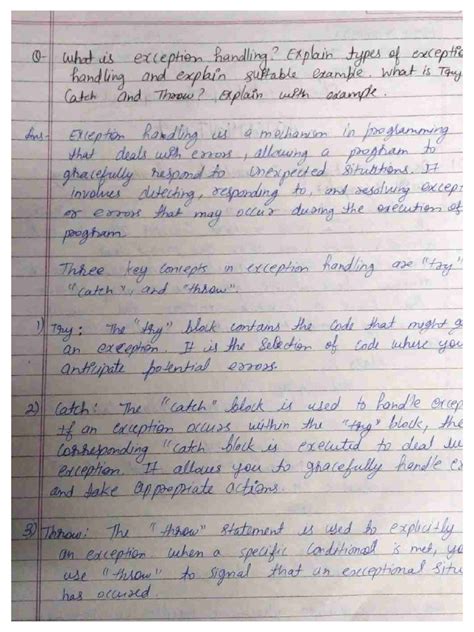 Q- What is exception handling? Explain types of excepti
handling and explain suitable example. What is Try
Catch and Throw? Explain with example.
Ans- Exception handling is a mechanism in programming
that deals with errors, allowing a program to
gracefully respond to unexpected situations. It
involves detecting, responding to, and resolving excep
or errors that may occur during the execution of
program.
Three key concepts in exception handling are "try"
"catch", and "throw".
1) Try: The "try" block contains the code that might g
an exception. It is the Selection of code where you
anticipate potential errors.
2) Catch: The "catch" block is used to handle excep
If an exception occurs within the "try" block, the
corresponding "catch block is executed to deal
exception. It allows you to gracefully handle e
and take appropriate actions.
3) Throw: The "throw" statement is used to explicitly
an exception when a specific conditional is met, yo
use "throw" to signal that an exceptional situ
has occured.